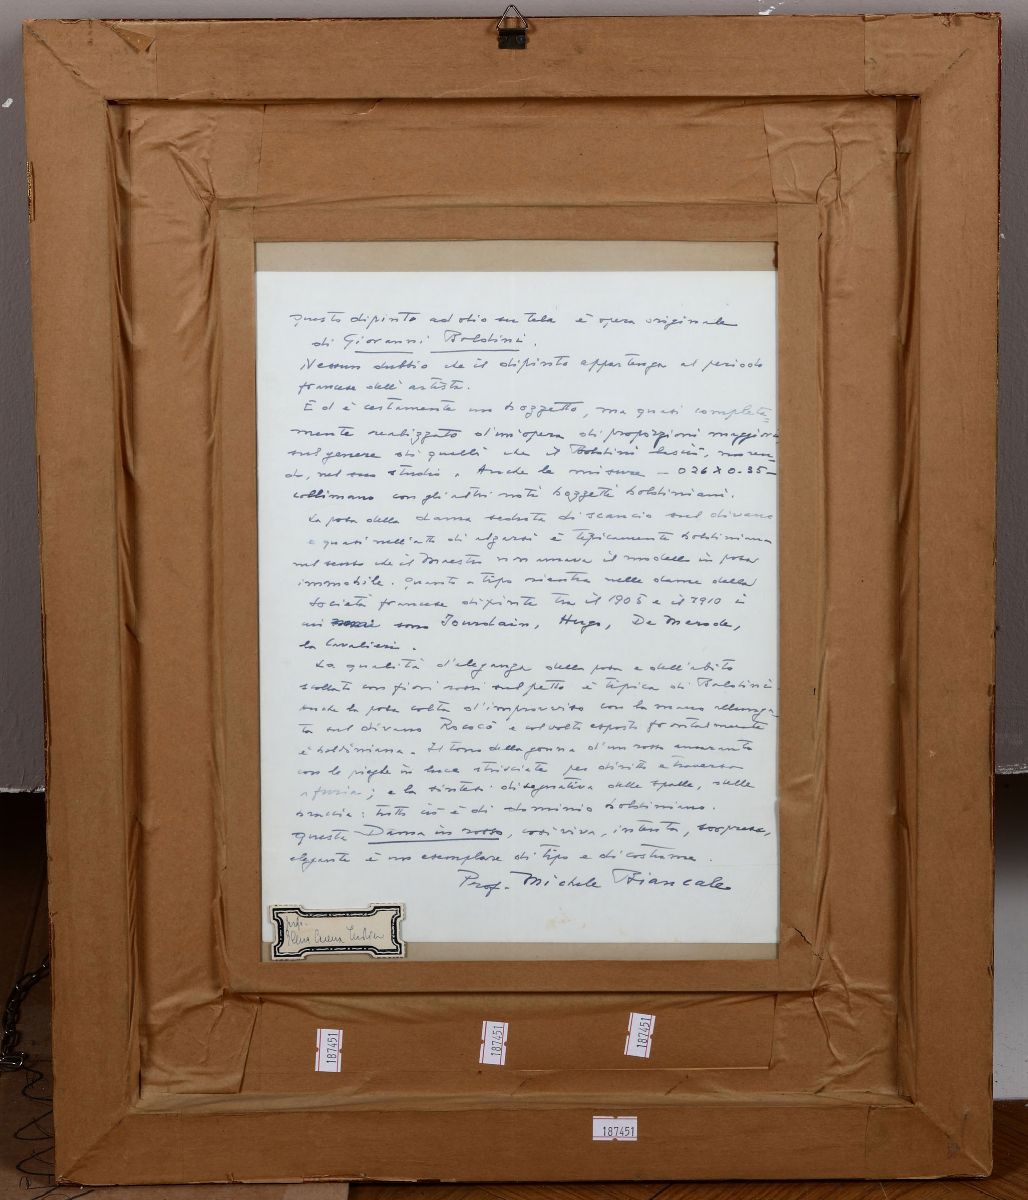 Questo dipinto ad olio su tela è opera originale
di Giovanni Boldini.
Nessun dubbio che il dipinto appartenga al periodo
francese dell'artista.
Ed è certamente un bozzetto, ma quasi completa=
mente realizzato d'un'opera di proporzioni maggiori
sul genere di quelli che il Boldini lasciò, moren-
do, nel suo studio. Anche le misure - 026 x 0.35 -
collimano con gli altri noti bozzetti boldiniani.
La posa della dama seduta di scancio sul divano
e quasi nell'atto di alzarsi è tipicamente boldiniana
nel senso che il Maestro non amava il modello in posa
immobile. Quanto a tipo rientra nelle dame della
Società francese dipinte tra il 1905 e il 1910 i
cui sono Jourdain, Hugo, De Merode,
la Cavalieri.
La qualità d'eleganza della posa e dell'abito
scollato con fiori rossi sul petto è tipica di Boldini
anche la posa colta d'improvviso con la mano allunga
ta sul divano Rococò e col volto esposto frontalmente
è boldiniana. Il tono della gonna d'un rosso amaranto
con le pieghe in luce strisciate per diritto e traverso
a furia; e la sintesi disegnativa delle spalle, delle
braccia: tutto ciò è di dominio boldiniano.
Questa Dama in rosso, così viva, intenta, sorpresa,
elegante è un esemplare di tipo e di costume.
Prof. Michele Biancale
187451
187451
187451
187451